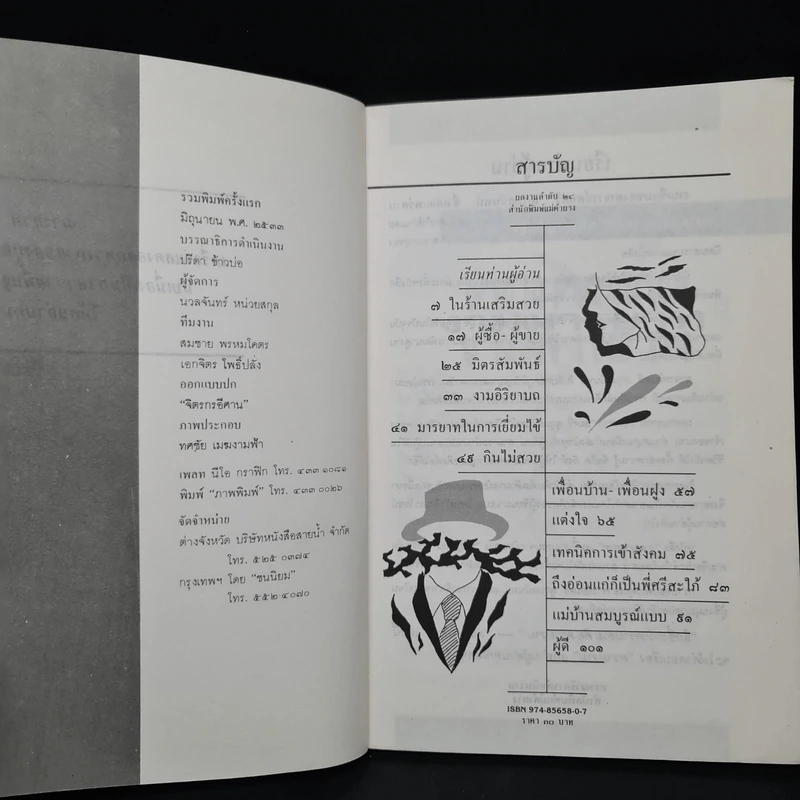 รวมพิมพ์ครั้งแรก
มิถุนายน พ.ศ. ๒๕๓๓
บรรณาธิการดำเนินงาน
ปรีดา ข้าวบ่อ
ผู้จัดการ
นวลจันทร์ หน่วยสกุล
ทีมงาน
สมชาย พรหมโคตร
เอกจิตร โพธิ์ปลั่ง
ออกแบบปก
“จิตรกรอีศาน”
ภาพประกอบ
ทศชัย เมฆงามฟ้า
เพลท นีโอ กราฟิก โทร. ๔๓๓ ๑๐๘๑
พิมพ์ “ภาพพิมพ์” โทร. ๔๓๓ ๐๐๒๖
จัดจำหน่าย
ต่างจังหวัด บริษัทหนังสือสายน้ำ จำกัด
โทร. ๕๒๕ ๐๓๗๔
กรุงเทพฯ โดย “ชนนิยม”
โทร. ๕๕๒ ๔๐๗๐
สารบัญ
ผลงานลำดับ ๒๔
สำนักพิมพ์แม่คำผาง
เรียนท่านผู้อ่าน
๗ ในร้านเสริมสวย
๑๗ ผู้ซื้อ-ผู้ขาย
๒๕ มิตรสัมพันธ์
๓๓ งามอิริยาบถ
๔๑ มารยาทในการเยี่ยมไข้
๔๙ กินไม่สวย
เพื่อนบ้าน-เพื่อนฝูง ๕๗
แต่งใจ ๖๕
เทคนิคการเข้าสังคม ๗๕
ถึงอ่อนแก่ก็เป็นพี่ศรีสะใภ้ ๘๓
แม่บ้านสมบูรณ์แบบ ๙๑
ผู้ดี ๑๐๑
ISBN 974-85658-0-7
ราคา ๓๐ บาท